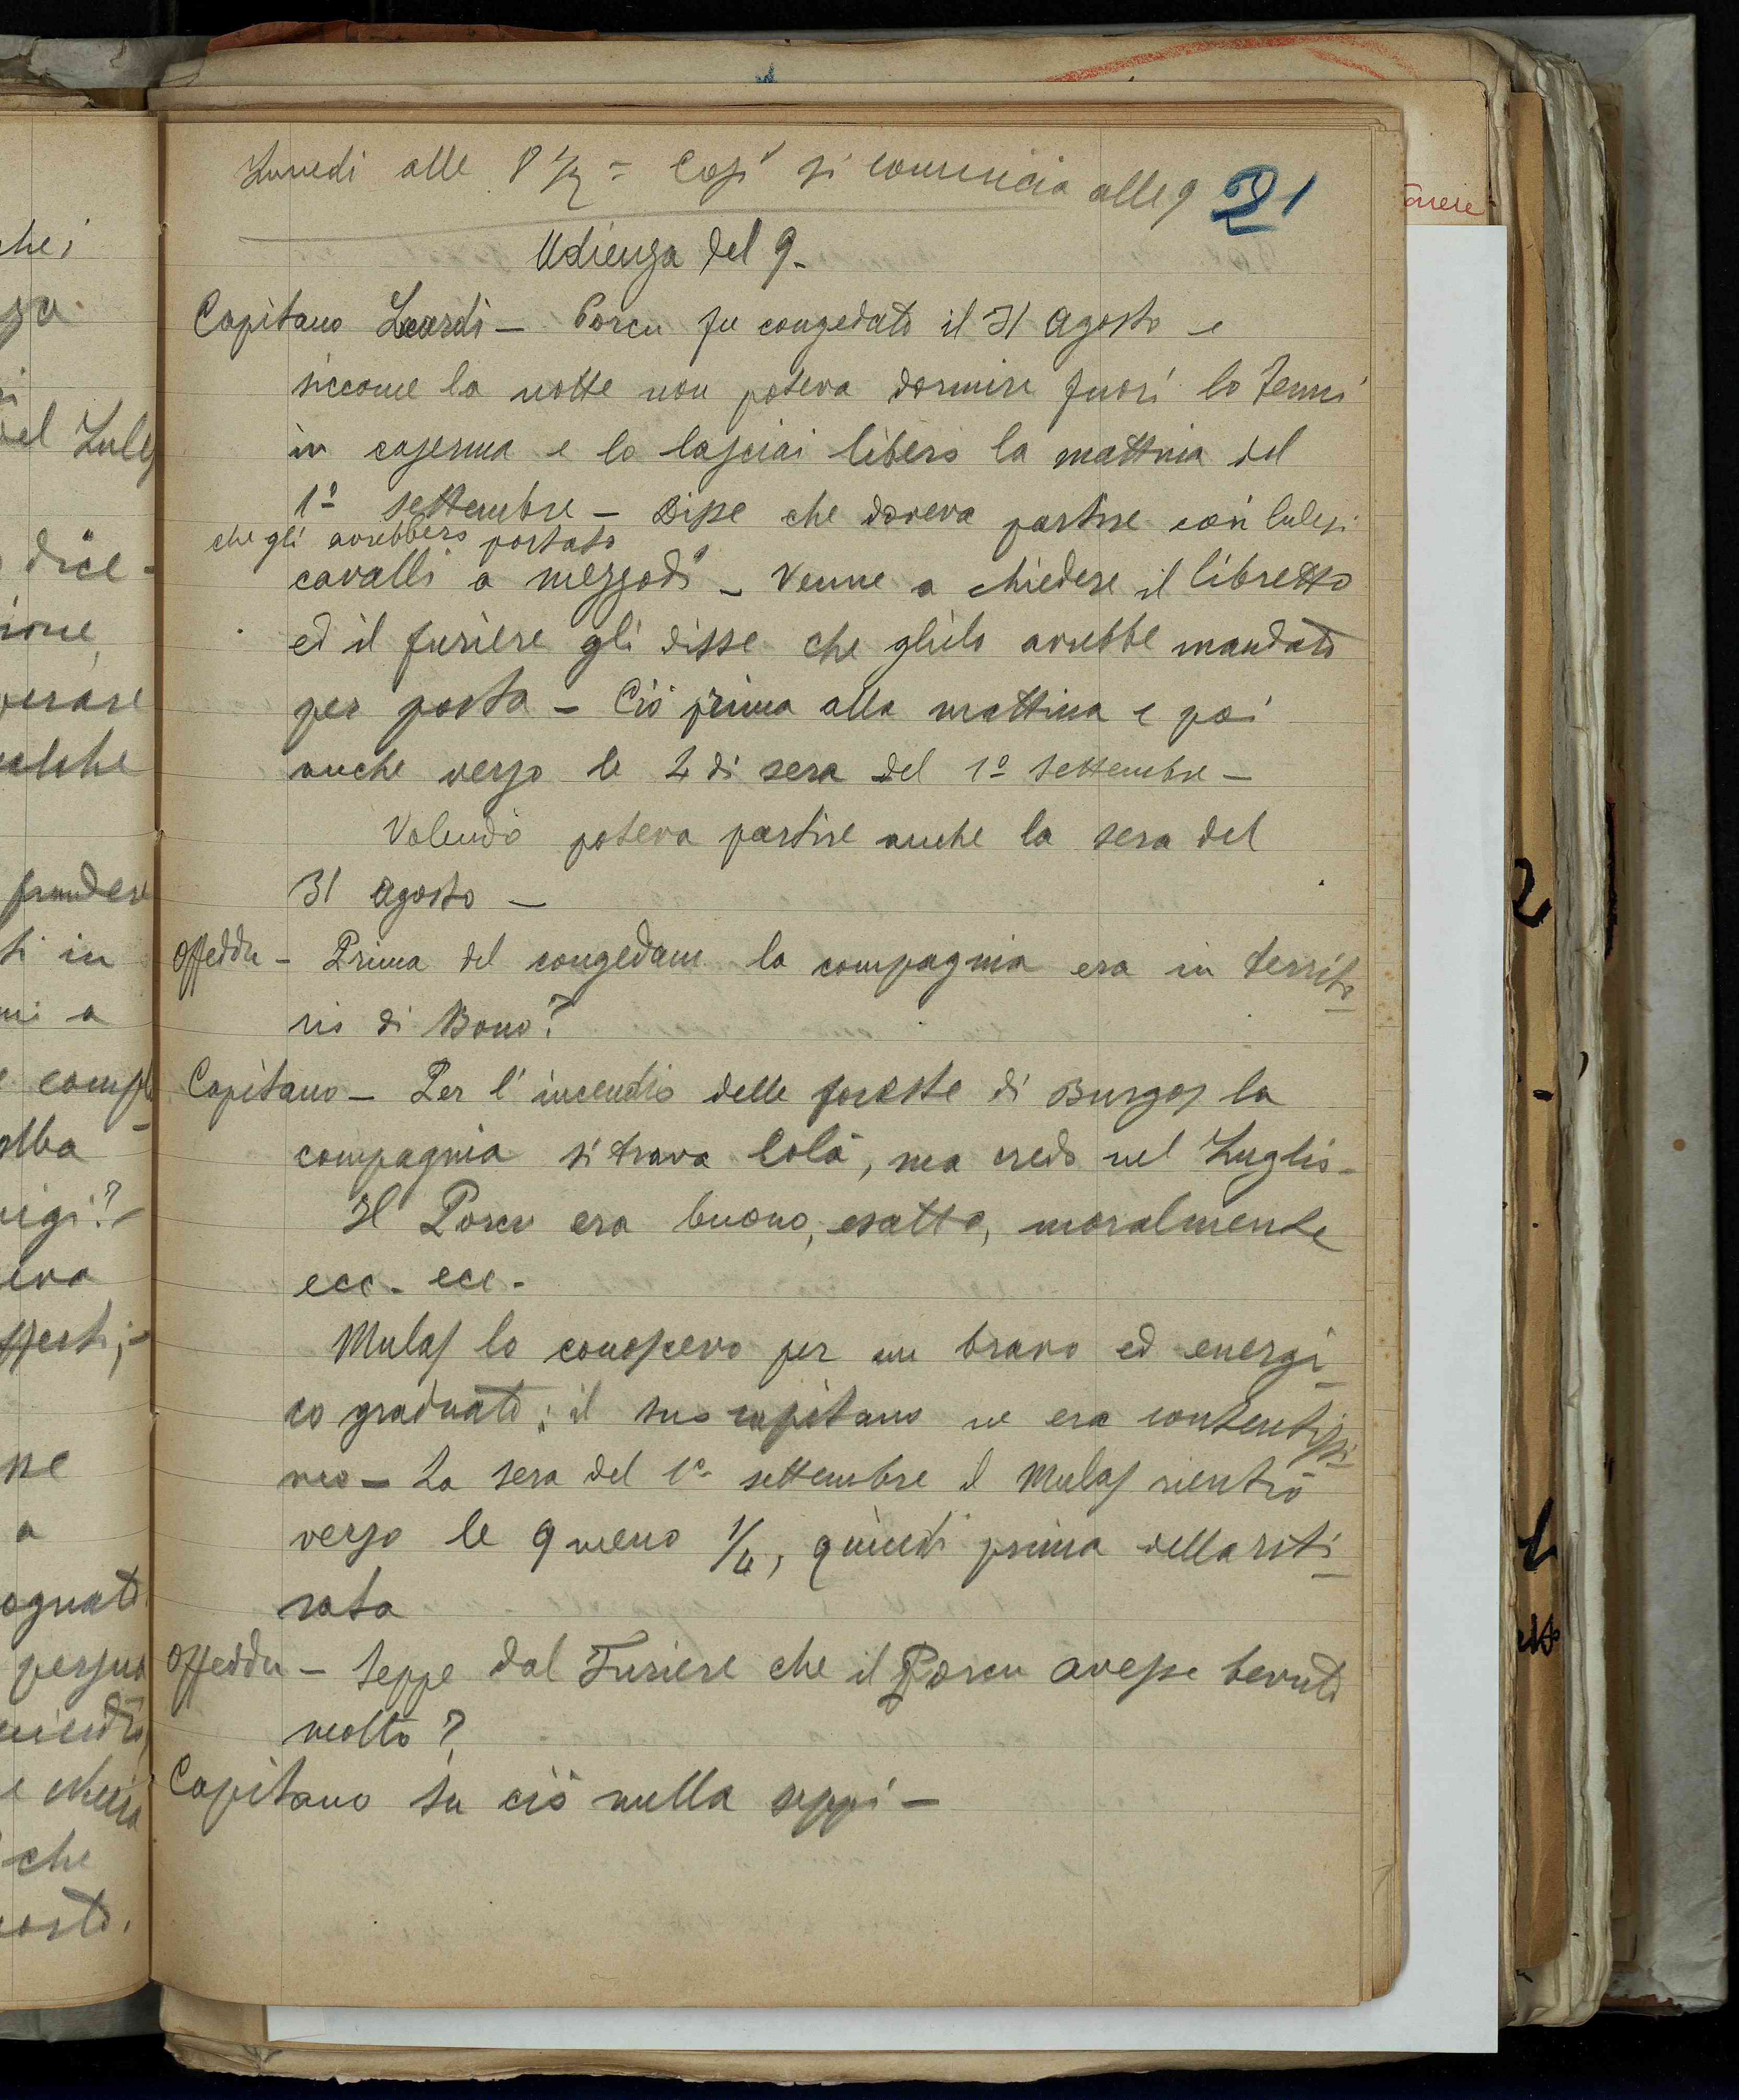 Lunedi alle 8 1/2 = Così si comincia alle 9
21
Udienza del 9-
Capitano Leardi - Porcu fu congedato il 31 agosto e
siccome la notte non poteva dormire fuori lo tenni
in caserma e lo lasciai libero la mattina del
1º settembre - Disse che doveva partire con lulesi
che gli avrebbero portato
cavalli a mezzodì - Venne a chiedere il libretto
ed il furiere gli disse che glielo avrebbe mandato
per posta - Ciò prima alla mattina e poi
anche verso le 2 di sera del 1º settembre -
Volendo poteva partire anche la sera del
31 agosto -
Offeddu - Prima del congedam. la compagnia era in territo
rio di Bono?
Capitano - Per l'incendio delle foreste di Burgos la
compagnia si trova colà, ma credo nel Luglio -
Il Porcu era buono, esatto, moralmente
ecc. ecc.
Mulas lo conoscevo per un bravo ed energi
co graduato; il suo capitano ne era contentissi
mo - La sera del 1º settembre il Mulas rientrò
verso le 9 meno 1/4, quindi prima della riti
rata
Offeddu - Seppe dal Furiere che il Porcu avesse bevuto
molto?
Capitano Su ciò nulla seppi -
che i
del Lules
dice -
zione
qualche
prendere
ti in
mi a
alba
igi? -
era
ne
a
che